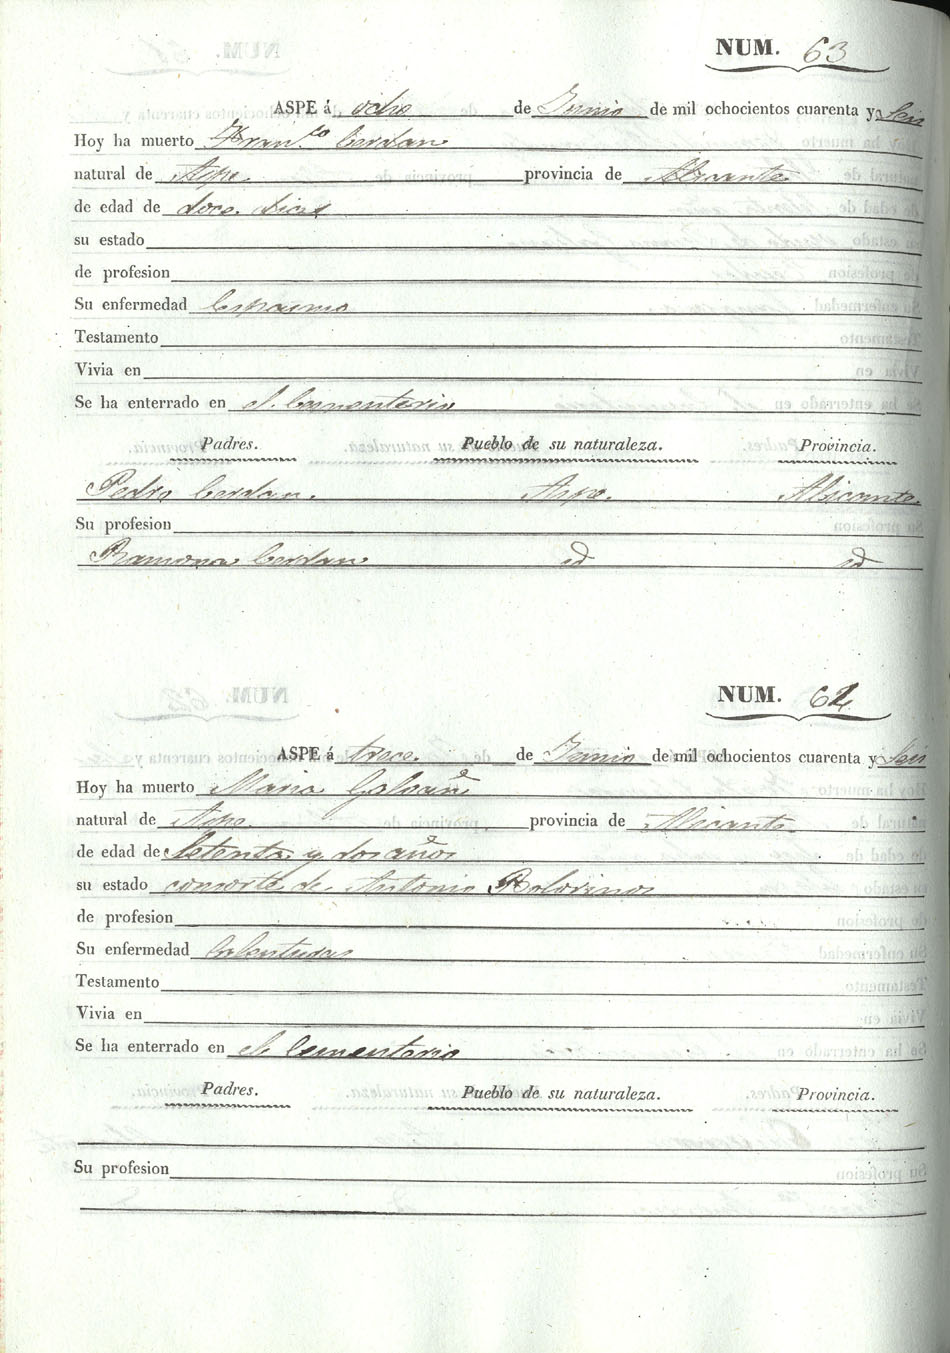 NUM. 63
ASPE á ocho de Junio de mil ochocientos cuarenta y Seis
Hoy ha muerto Fran.co Cerdan
natural de Aspe. provincia de Alicante
de edad de doce dias
su estado
de profesion
Su enfermedad
Testamento
Vivia en
Se ha enterrado en el Cementerio
Padres. Pueblo de su naturaleza. Provincia.
Pedro Cerdan. Aspe. Alicante.
Su profesion
Ramona Cerdan id id
NUM. 64
ASPE á trece. de Junio de mil ochocientos cuarenta y Seis
Hoy ha muerto Maria Galvañ
natural de Aspe. provincia de Alicante.
de edad de Setenta y dos años
su estado consorte de Antonio Bolorinos
de profesion
Su enfermedad Calenturas
Testamento
Vivia en
Se ha enterrado en el Cementerio
Padres. Pueblo de su naturaleza. Provincia.
Su profesion